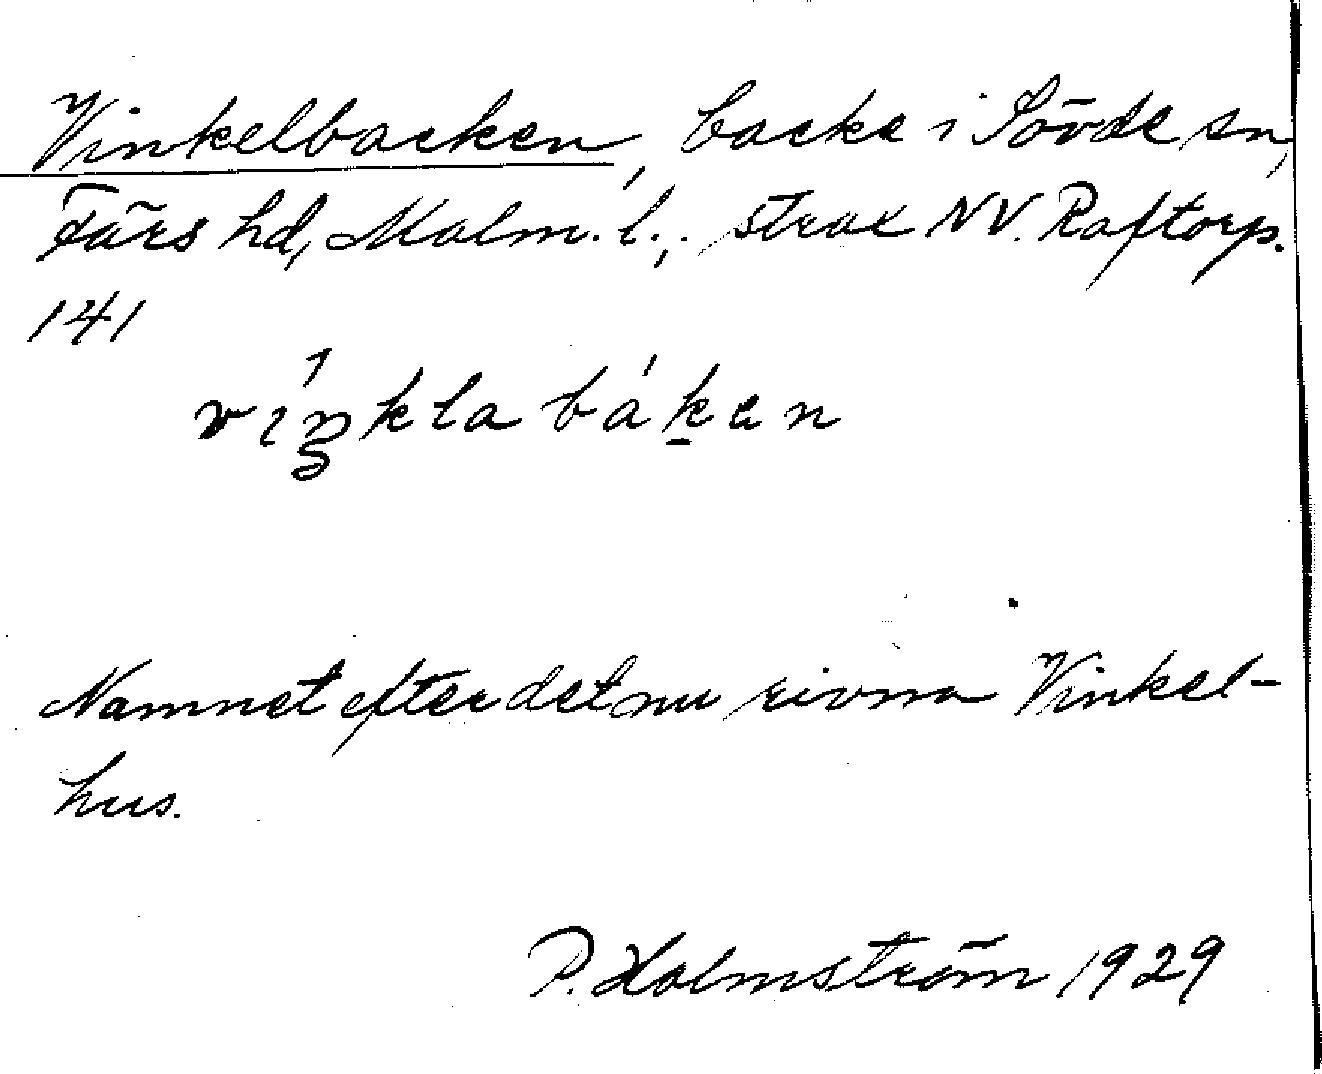 Vinkelbacken, backe i Sövde sn,
Färs hd, Malm. l., strax NV. Raftorp.
141
viŋkla bákan
Namnet efter det nu rivna Vinkel-
hus.
P. Holmström 1929